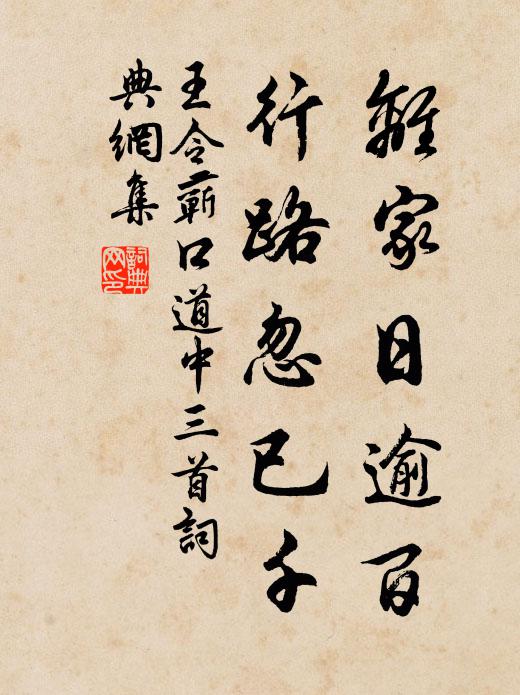 離家日逾百
行路忽已千
王令蘄口道中三首詞
典網集
詞典
网印